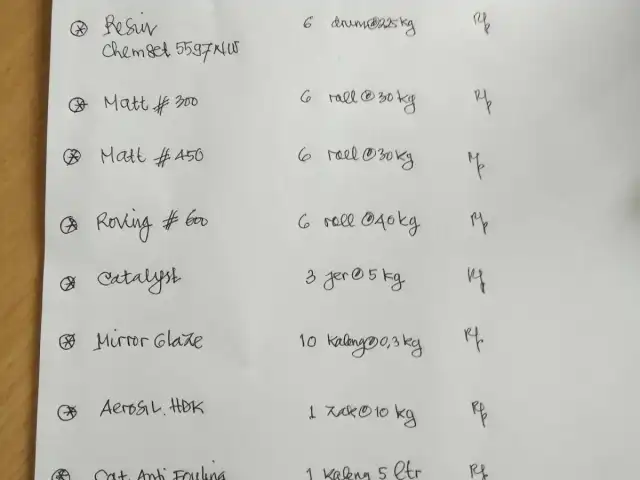 Resin 6 drum@225kg Rp
Chemset 5597NW
Matt # 300 6 roll@30kg Rp
Matt # 450 6 roll@30kg Rp
Roving # 600 6 roll@40kg Rp
Catalyst 3 jer@5kg Rp
Mirror Glaze 10 Kaleng@0,3kg Rp
AEROSIL.HDK 1 zak@10kg Rp
Cat Anti Fouling 1 Kaleng 5 ltr Rp